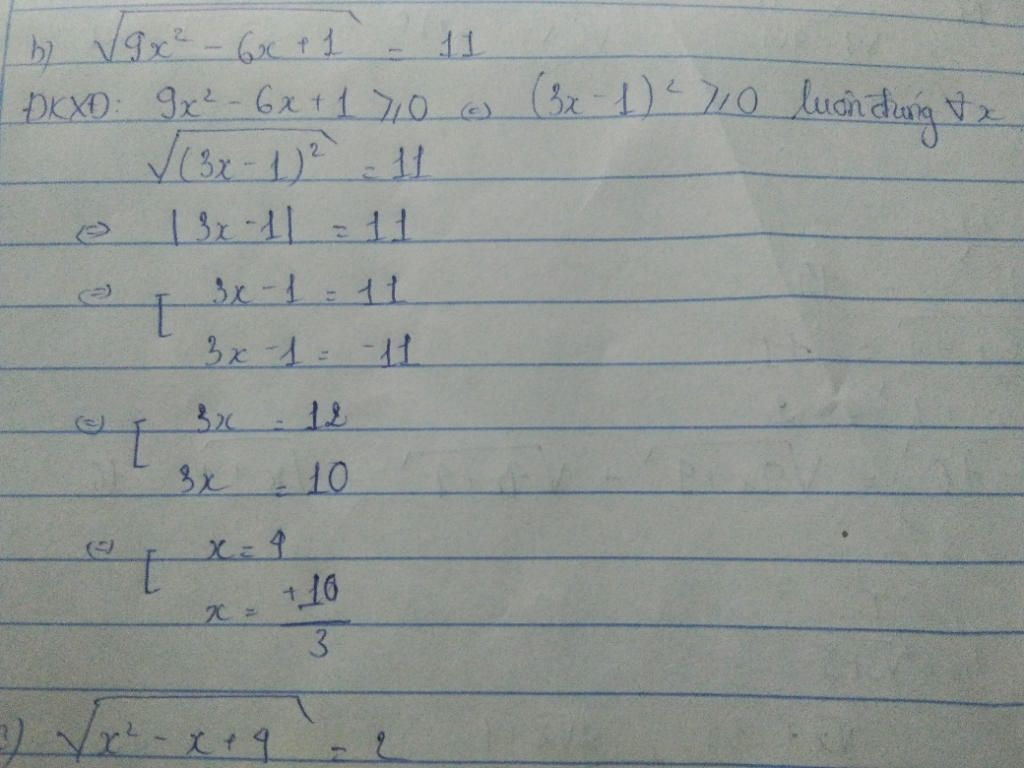 b) √(9x² - 6x + 1) = 11
ĐKXĐ: 9x² - 6x + 1 ≥ 0 ⇔ (3x - 1)² ≥ 0 luôn đúng ∀x
√((3x - 1)²) = 11
⇔ |3x - 1| = 11
⇔ [ 3x - 1 = 11
3x - 1 = -11
⇔ [ 3x = 12
3x = 10
⇔ [ x = 4
x = +10/3
c) √(x² - x + 4) = 2